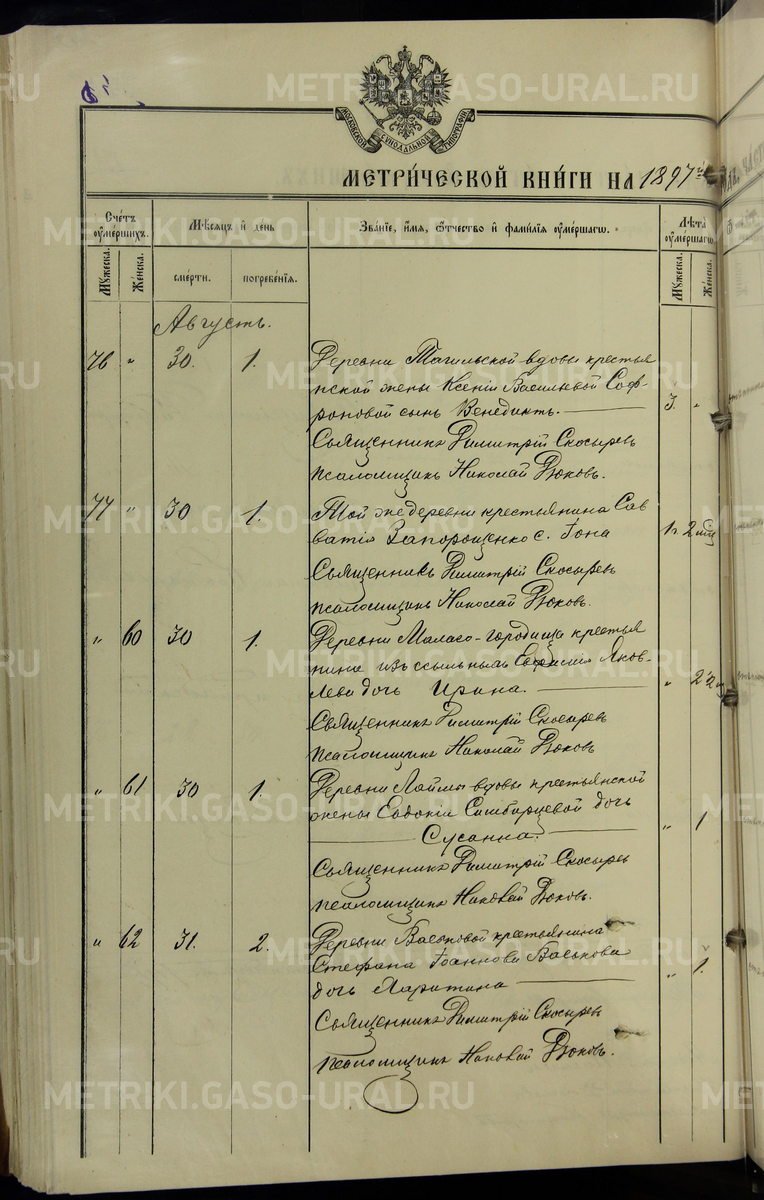 МОСКОВСКОЙ СѴНОДАЛЬНОЙ ТИПОГРАФІИ
МЕТРИ́ЧЕСКОЙ КНИ́ГИ НА 1897й
Сче́тъ ᲂу҆ме́ршихъ.
Мѣ́сяцъ и҆ де́нь
Зва́нїе, и҆́мя, ѻ҆́тчество и҆ фами́лїя ᲂу҆ме́ршагѡ.
Лѣ̀та ᲂу҆ме́ршагѡ.
Мꙋ́жеска.
Же́нска.
сме́рти.
погребе́нїя.
Мꙋ́жеска.
Же́нска.
Августъ.
76 " 30. 1. Деревни Тагильской вдовы крестья
нской жены Ксеніи Васильевой Соф-
роновой сынъ Венедиктъ. 3. "
Священникъ Димитрій Скосыревъ
Псаломщикъ Николай Дюковъ.
77 " 30 1. Той же деревни крестьянина Сав
ватія Запорощенко с. Іона 1г. 2 мѣс
Священникъ Димитрій Скосыревъ
Псаломщикъ Николай Дюковъ.
" 60 30 1. Деревни Малаго-городища крестья
нина изъ ссыльныхъ Яков-
лева дочь Ирина. " 2½
Священникъ Димитрій Скосыревъ
Псаломщикъ Николай Дюковъ
" 61 30 1. Деревни Лаймы вдовы крестьянской
жены Евдокіи Симбирцевой дочь
Сусанна. " 1
Священникъ Димитрій Скосыревъ
Псаломщикъ Николай Дюковъ.
" 62 31. 2. Деревни Васьковой крестьянина
Стефана Іоаннова Васькова
дочь Харитина " 1.
Священникъ Димитрій Скосыревъ
Псаломщикъ Николай Дюковъ.
METRIKI.GASO-URAL.RU